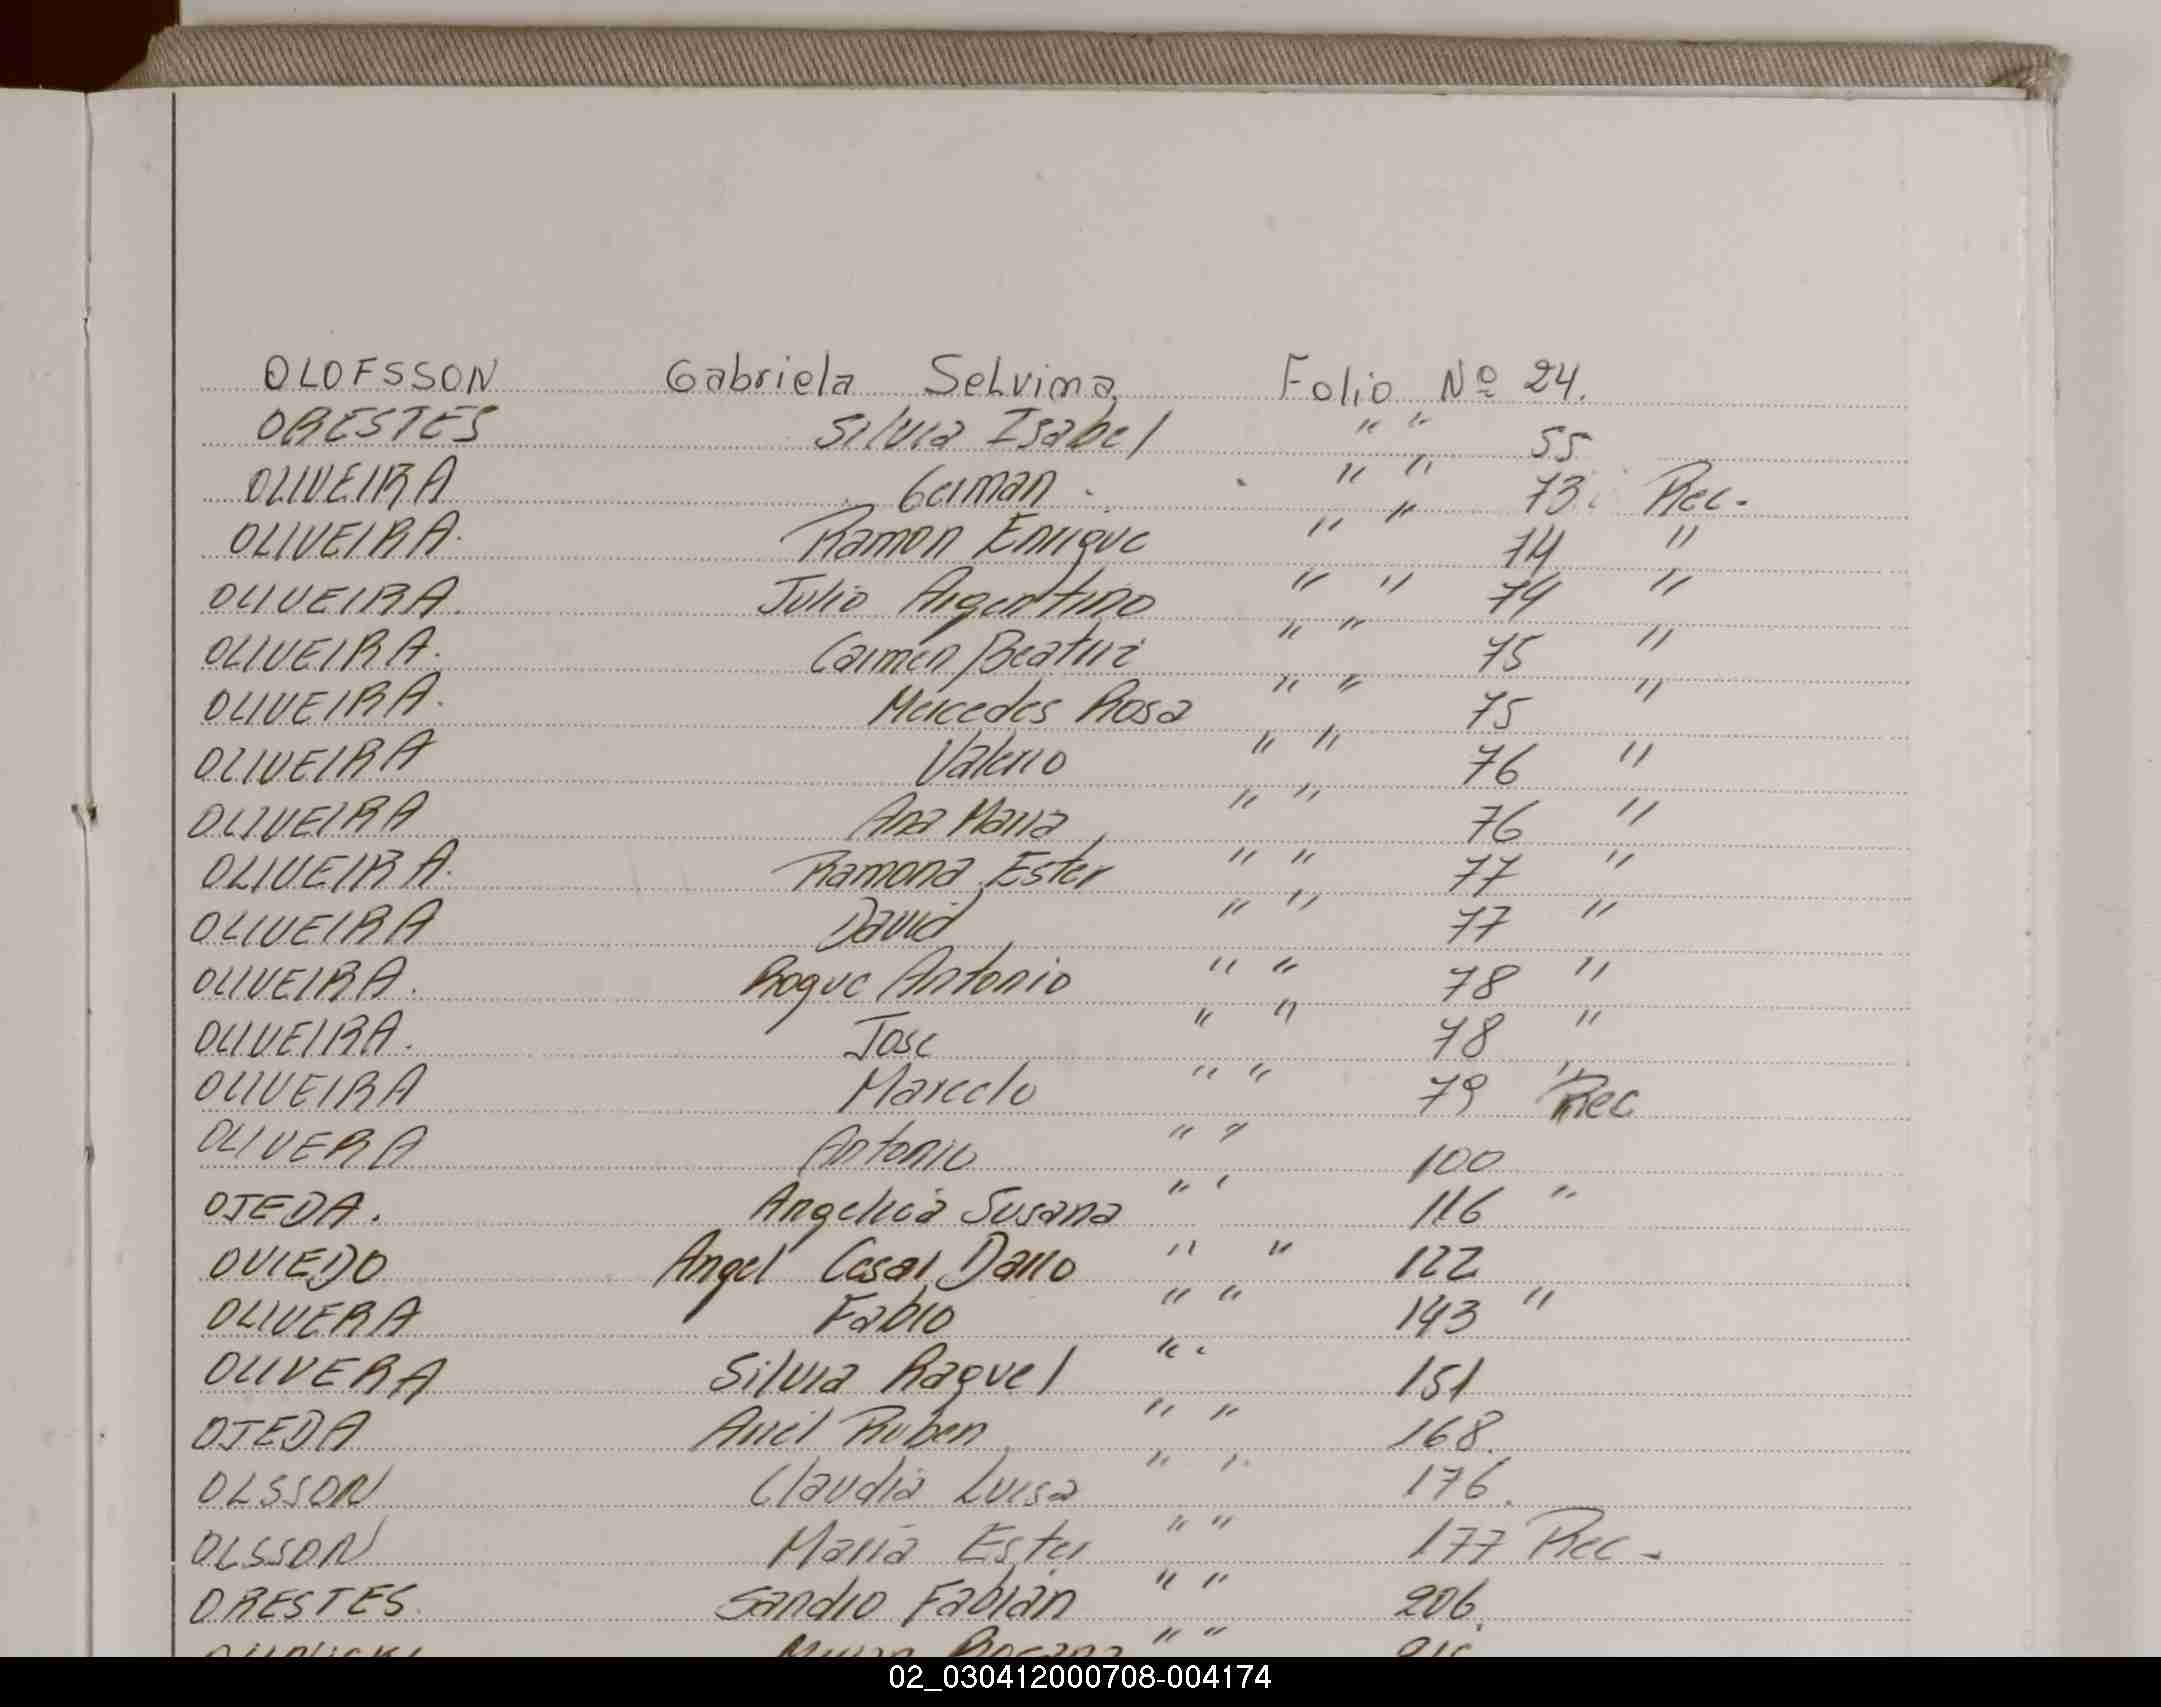 OLOFSSON Gabriela Selvima Folio Nº 24.
ORESTES Silvia Isabel " " 55
OLIVEIRA German . " " 73 Rec.
OLIVEIRA. Ramon Enrique " " 74 "
OLIVEIRA. Julio Argentino " " 74 "
OLIVEIRA. Carmen Beatriz " " 75 "
OLIVEIRA. Mercedes Rosa " " 75 "
OLIVEIRA Valerio " " 76 "
OLIVEIRA Ana Maria " " 76 "
OLIVEIRA. Ramona Ester " " 77 "
OLIVEIRA David " " 77 "
OLIVEIRA. Roque Antonio " " 78 "
OLIVEIRA. Jose " " 78 "
OLIVEIRA Marcelo " " 79 Rec
OLIVERA Antonio " " 100
OJEDA. Angelica Susana " " 116 "
OVIEDO Angel Cesar Dario " " 122
OLIVERA Fabio " " 143 "
OLIVERA Silvia Raquel " " 151
OJEDA Ariel Ruben " " 168.
OLSSON Claudia Luisa " " 176.
OLSSON Maria Ester " " 177 Rec -
ORESTES Sandro Fabián " " 206.
" "
02_030412000708-004174